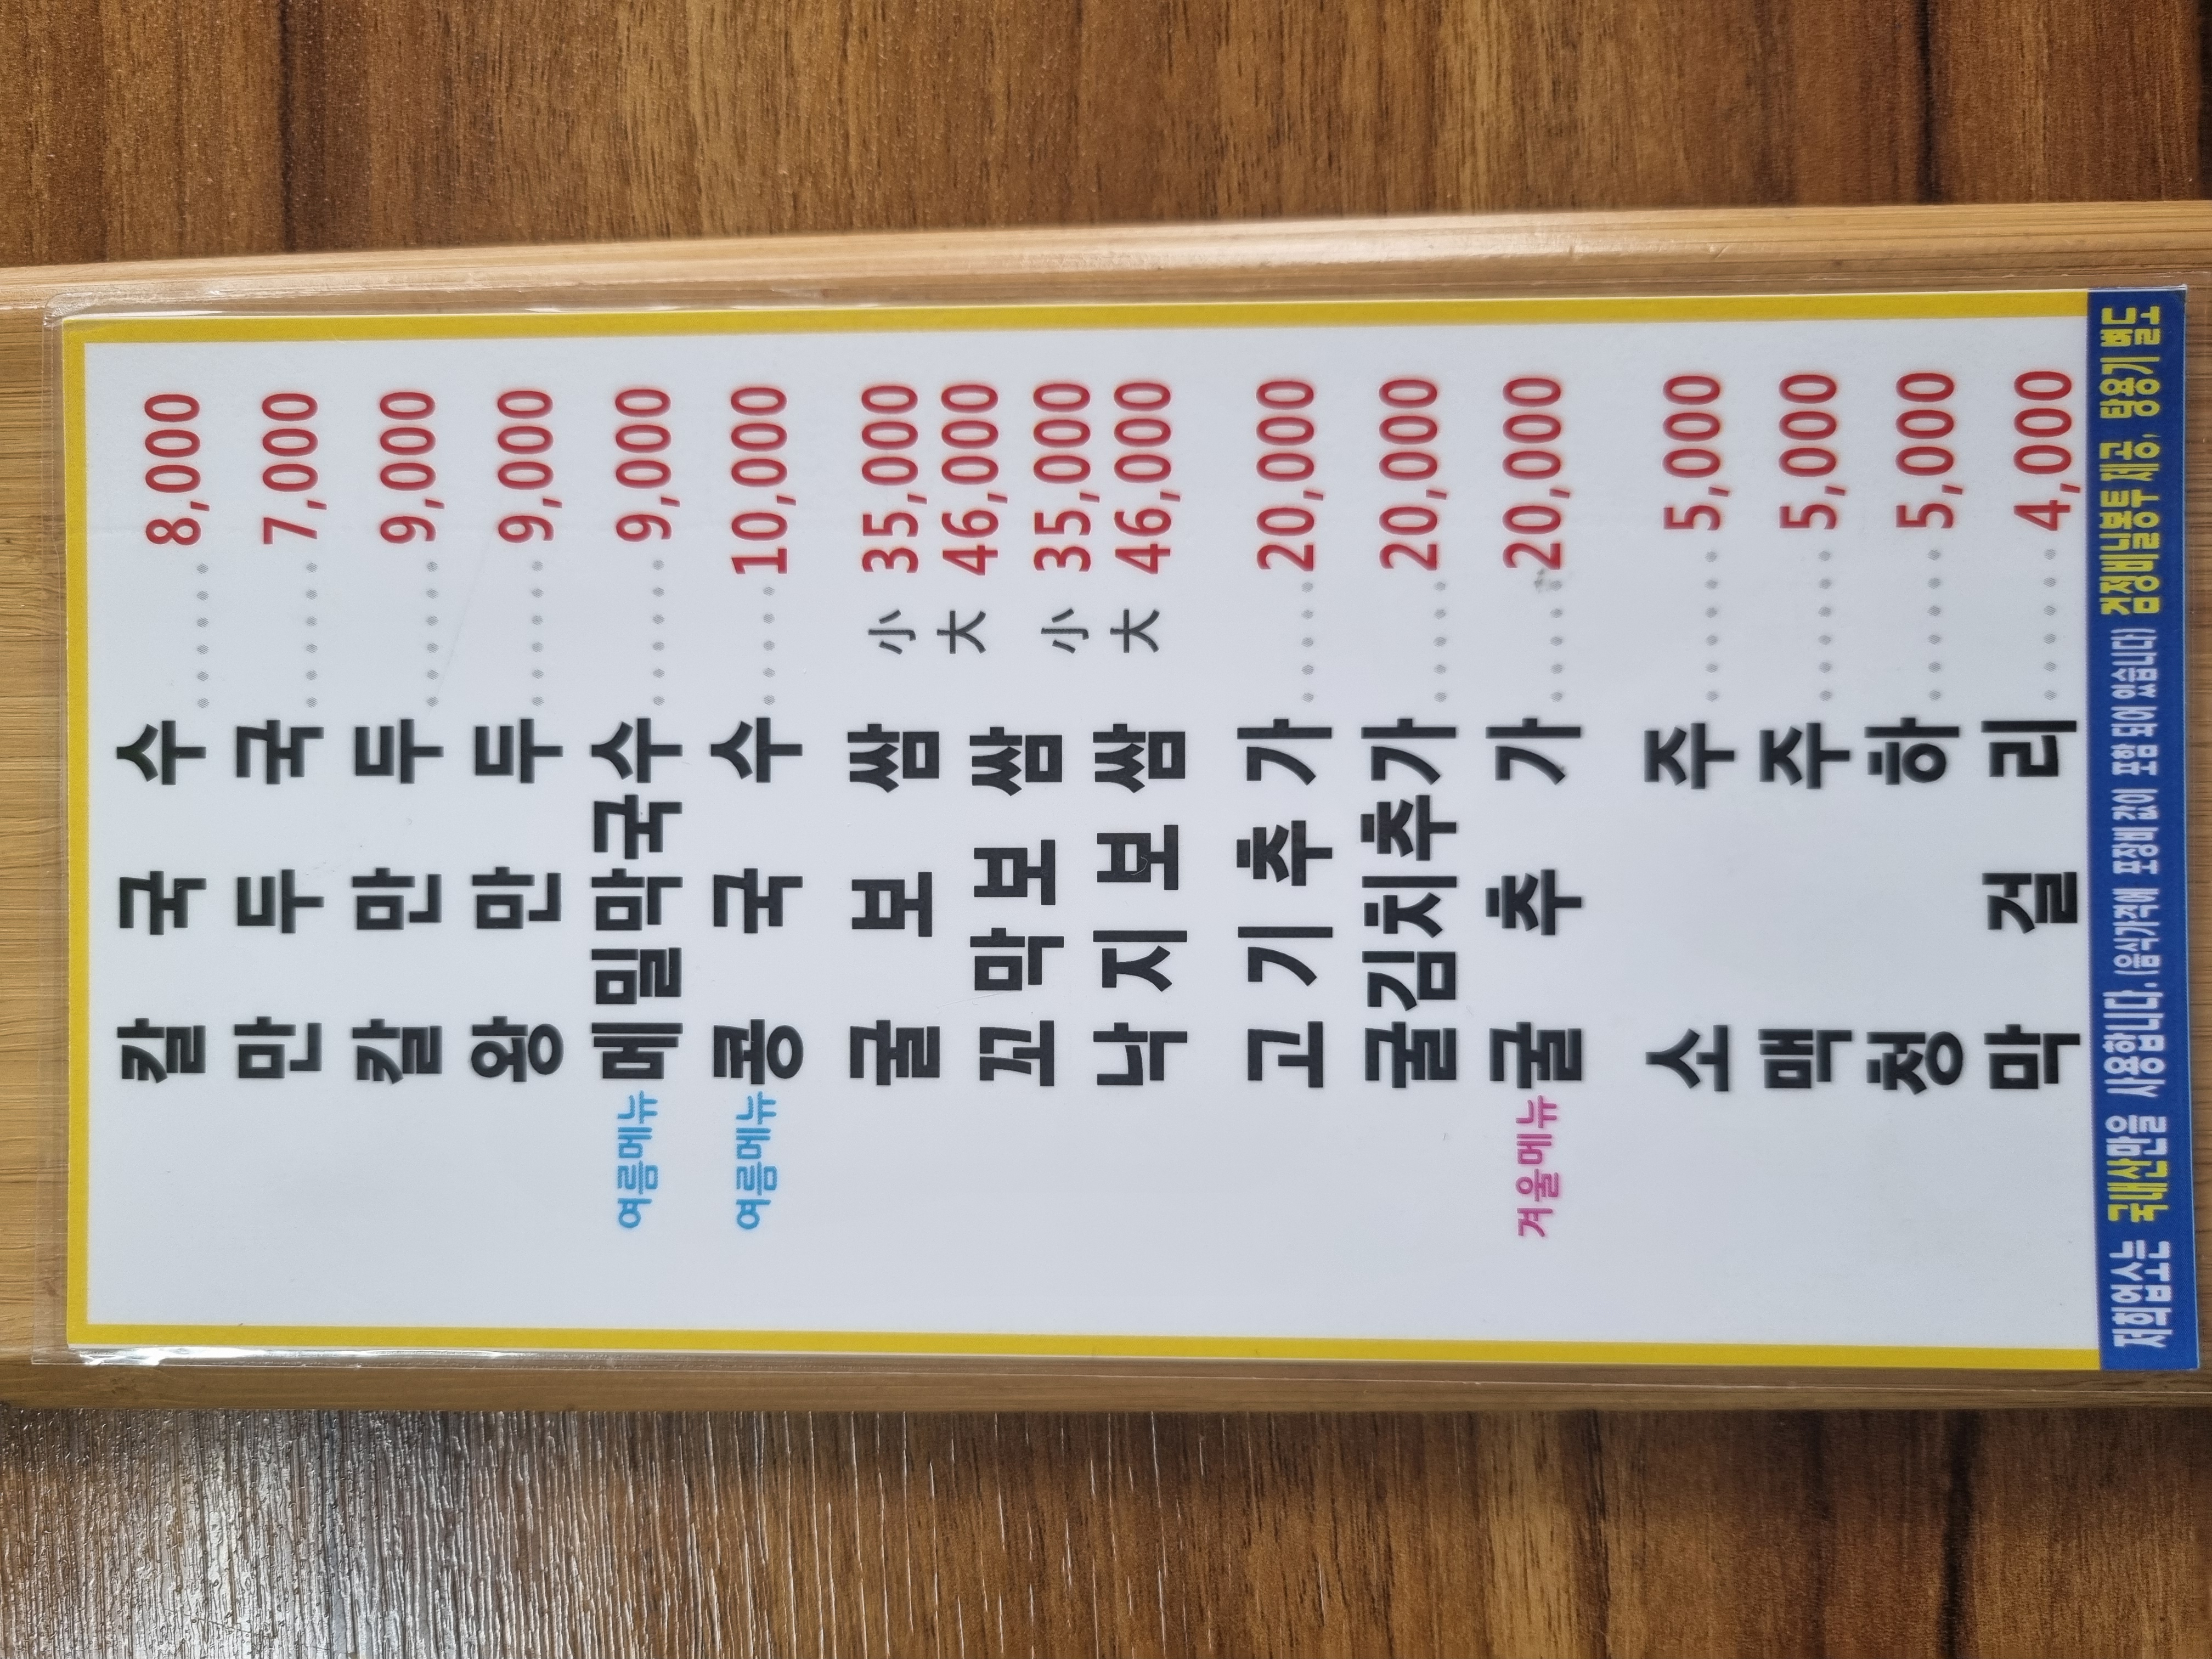 칼국수 ······ 8,000
만두국 ······ 7,000
칼만두 ······ 9,000
왕만두 ······ 9,000
여름메뉴 메밀막국수 ······ 9,000
여름메뉴 콩국수 ······ 10,000
굴보쌈 小 35,000
꼬막보쌈 大 46,000
낙지보쌈 小 35,000
大 46,000
고기추가 ······ 20,000
굴김치추가 ······ 20,000
겨울메뉴 굴추가 ······ 20,000
소주 ······ 5,000
맥주 ······ 5,000
청하 ······ 5,000
막걸리 ······ 4,000
저희업소는 국내산만을 사용합니다. (음식가격에 포장비 값이 포함 되어 있습니다) 검정비닐봉투 제공, 탕용기 별도